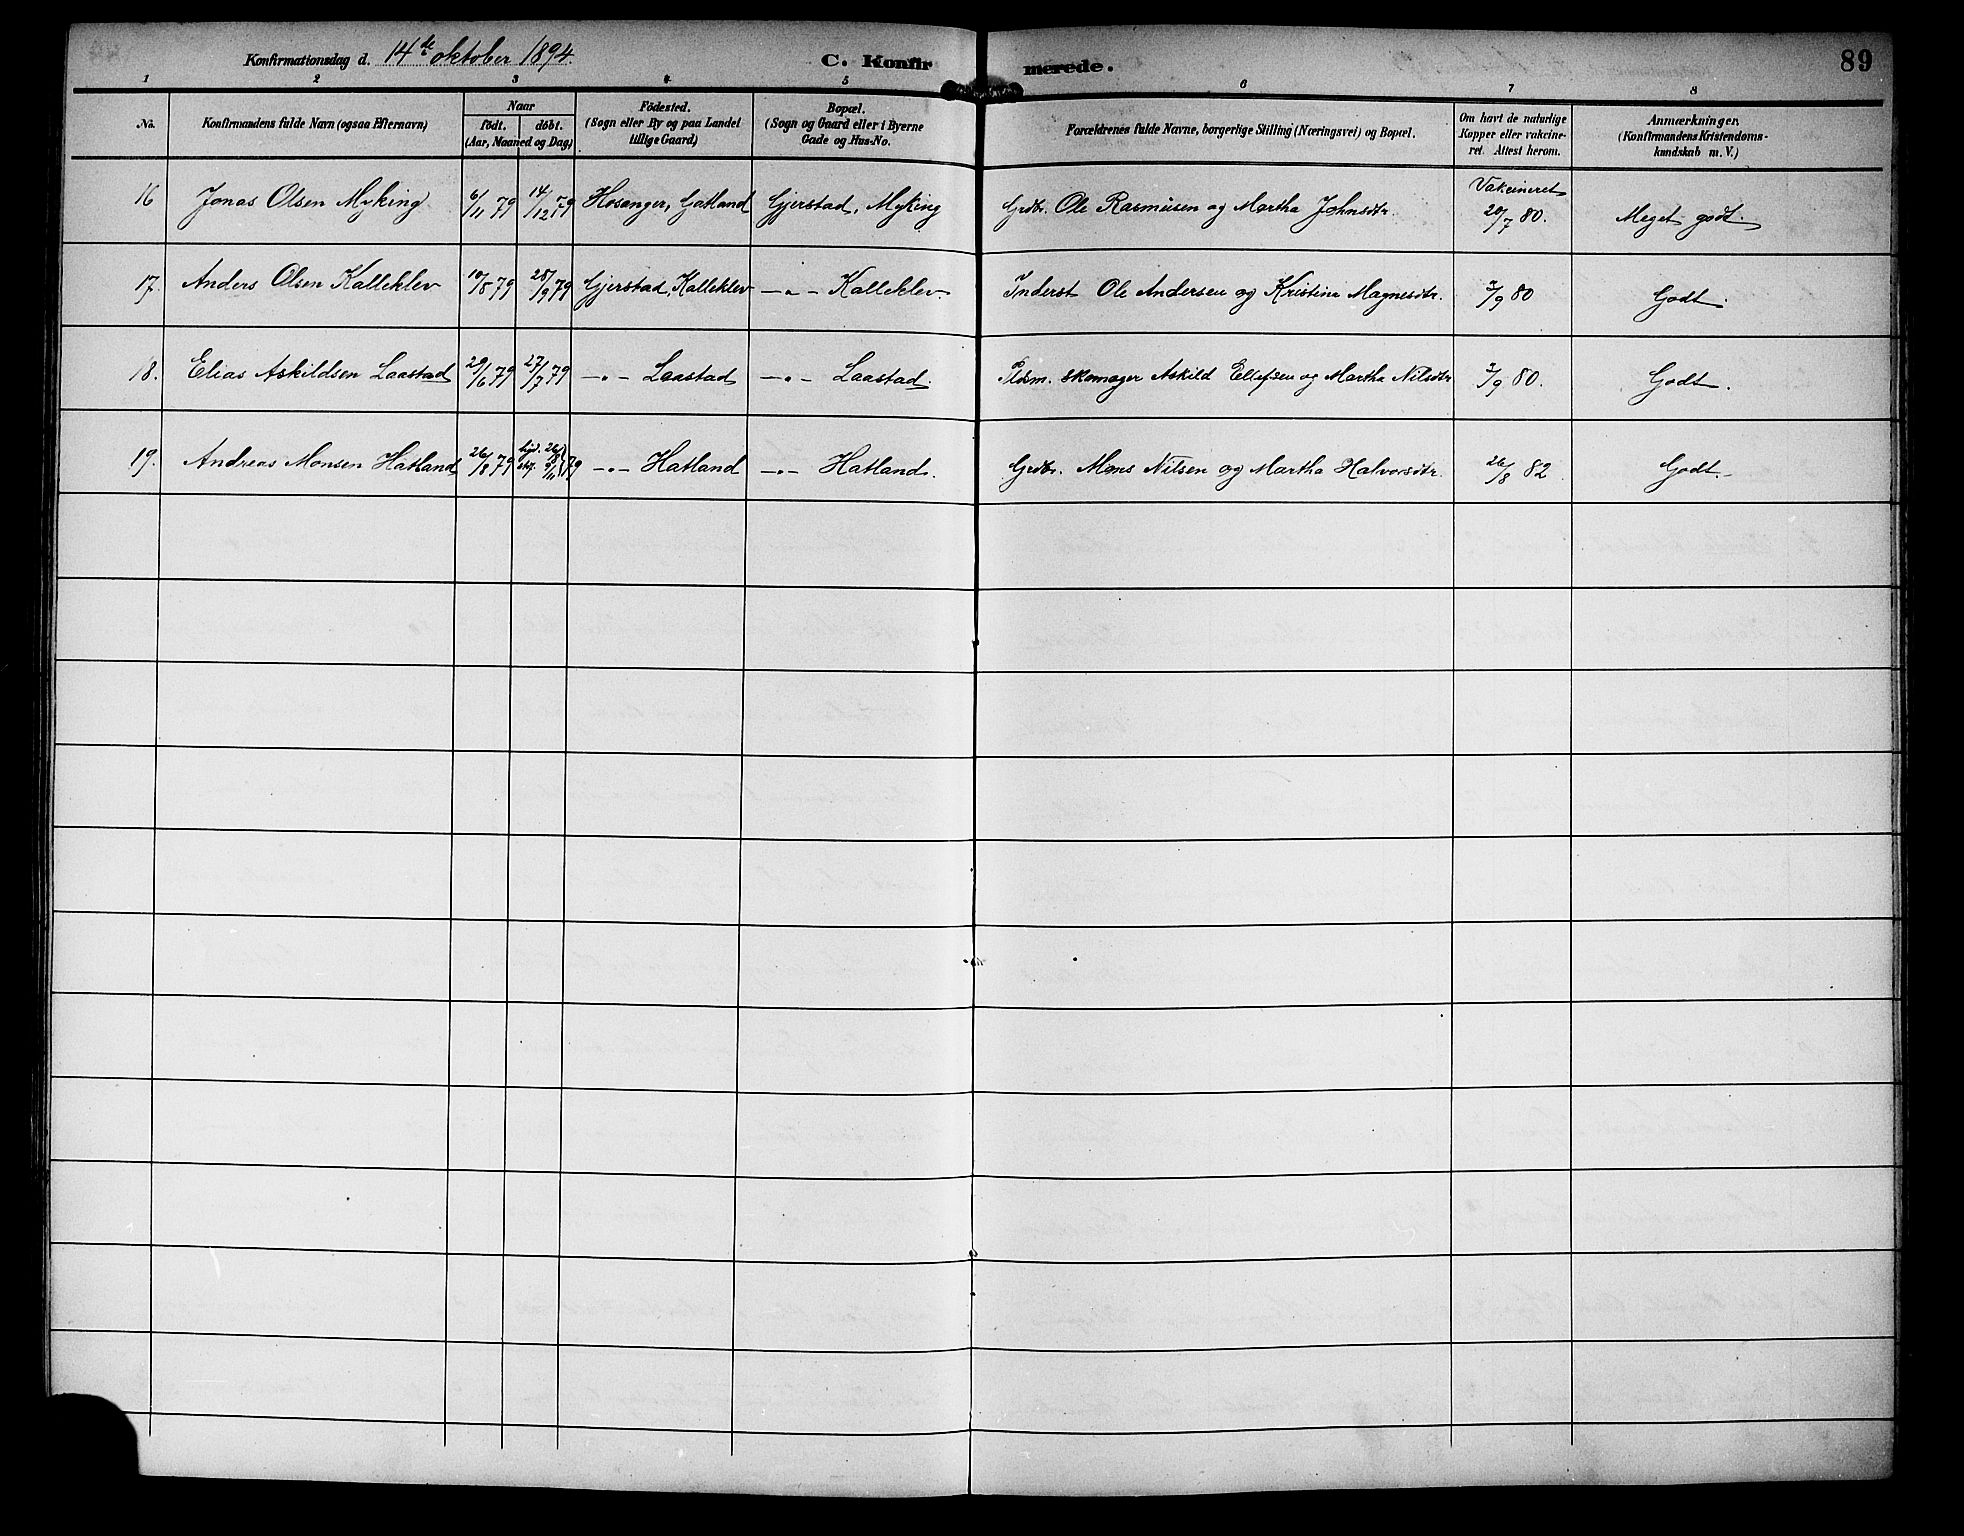 Konfirmationsdag d. 14de oktober 1894. C. Konfirmerede. 89
1 2 3 4 5 6 7 8
No.
Konfirmandens fulde Navn (ogsaa Efternavn)
Naar
født. døbt.
(Aar, Maaned og Dag)
Fødested.
(Sogn eller By og paa Landet
tillige Gaard)
Bopæl.
(Sogn og Gaard eller i Byerne
Gade og Hus-No.
Forældrenes fulde Navne, borgerlige Stilling (Næringsvei) og Bopæl.
Om havt de naturlige
Kopper eller vakcine-
ret. Attest herom.
Anmærkninger.
(Konfirmandens Kristendoms-
kundskab m. V.)
16 Jonas Olsen Myking 6/11 79 14/12 79 Hosanger, Gatland Gjerstad, Myking Grdbr. Ole Rasmusen og Martha Johnsdtr. Vakcineret 20/7 80. Meget godt.
17. Anders Olsen Kalleklev 10/8 79 28/9 79 Gjerstad, Kalleklev —„— Kalleklev. Inderst Ole Andersen og Kristine Magnesdtr. 2/9 80 Godt.
18. Elias Askildsen Laastad 29/6 79 27/7 79 —„— Laastad —„— Laastad. Pldsm. skomager Askild Ellefsen og Martha Nilsdtr 2/9 80. Godt.
19. Andreas Monsen Hatland 26/8 79 hjd. 26/8 stf. 9/11 } 79 —„— Hatland —„— Hatland. Grdbr. Mons Nilsen og Martha Halvorsdtr. 26/8 82 Godt.